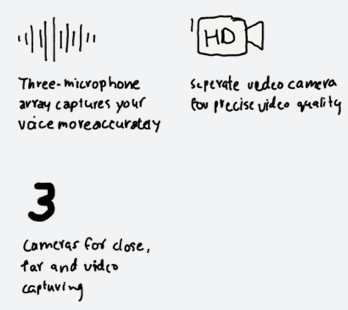 Three-microphone
array captures your
voice more accurately
HD
Seperate video camera
for precise video quality
3
Cameras for close,
far and video
capturing